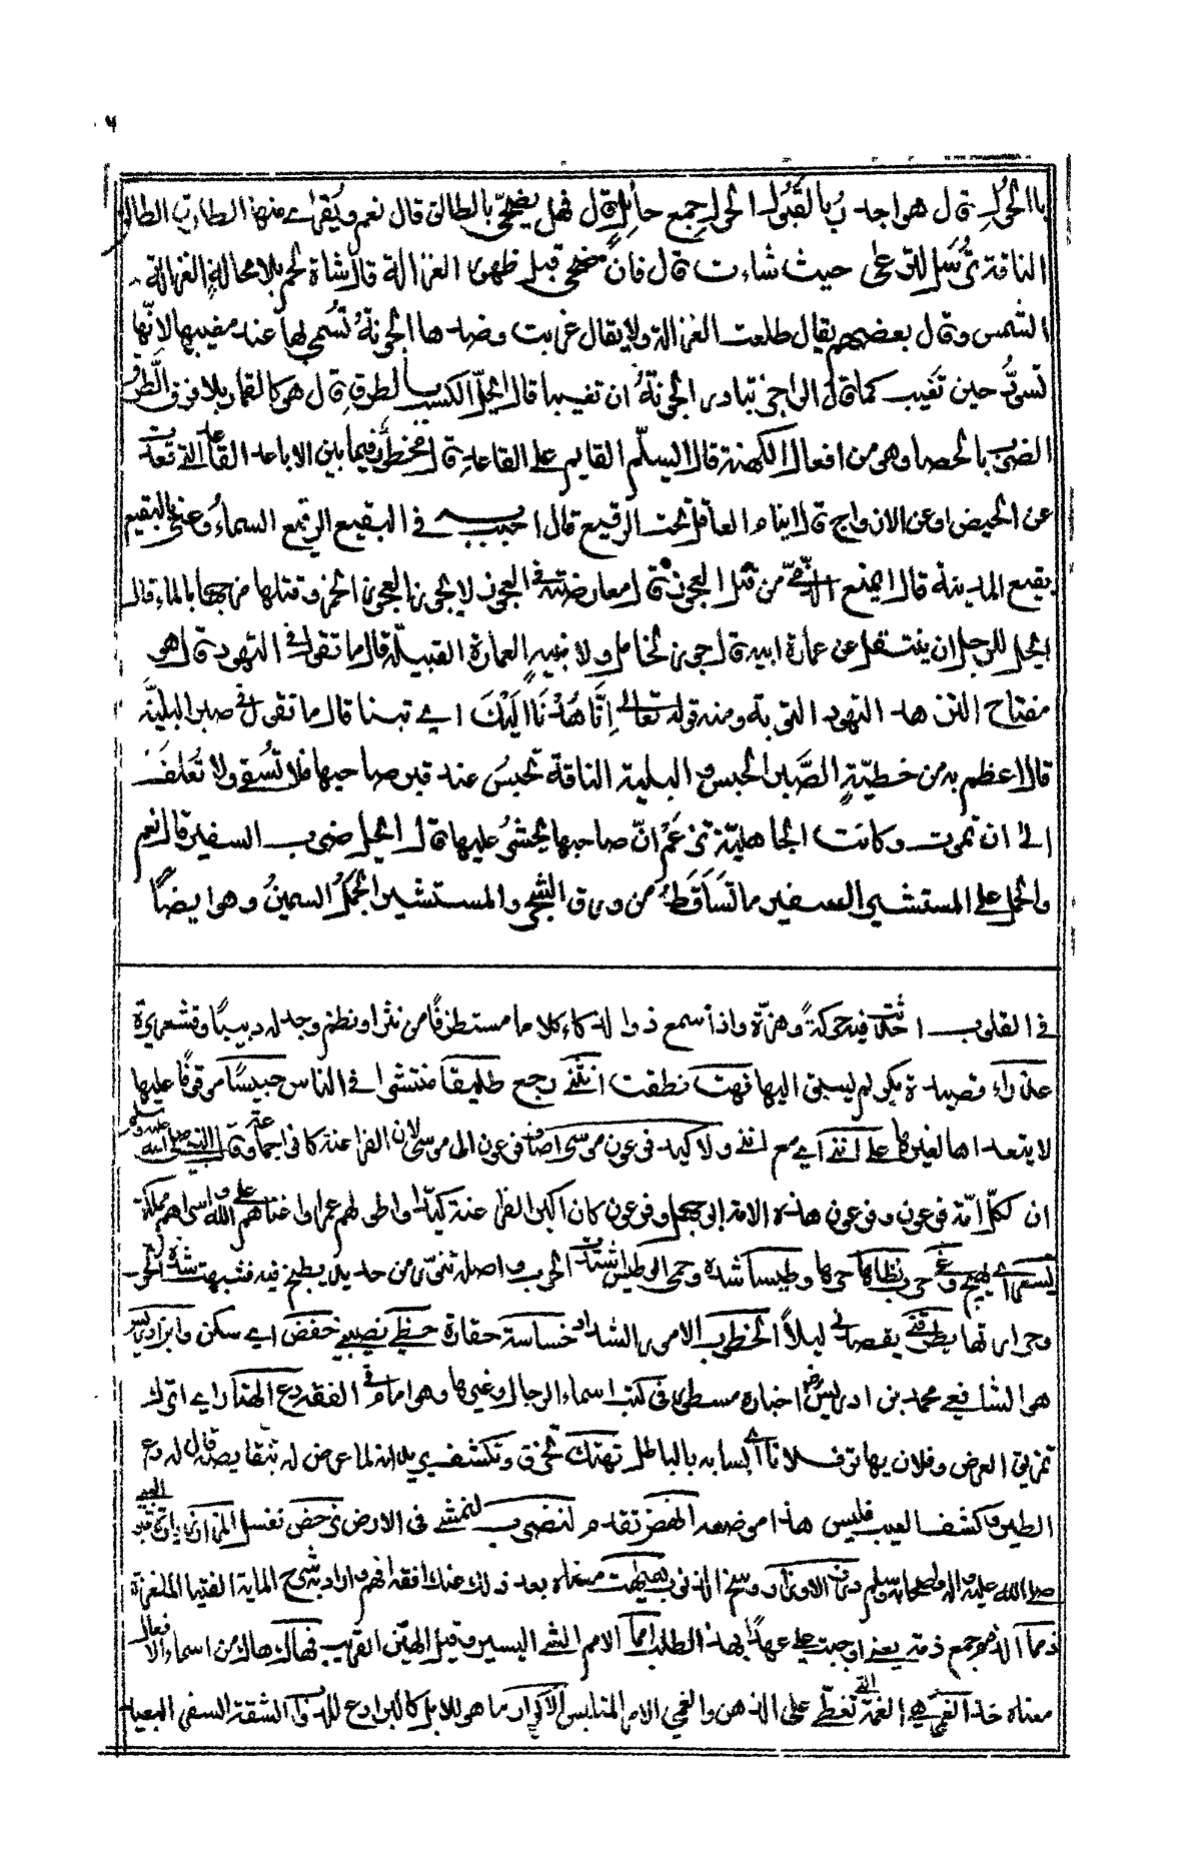 ٦
بالحول قال هو اجدر بالقبول الحول جمع حائل قال فهل يضحّى بالطالق قال نعم ويقرى منها الطارق الطالق
الناقة تُرسل للترعى حيث شاءت قال فان ضحى قبل ظهور الغزالة قال شاة لحم بلا محالةٍ الغزالة
الشمس وقال بعضهم يقال طلعت الغزالة ولا يقال غربت وضدها الجونةُ تُسمى بها عند مغيبها لانّها
تسودُّ حين تغيب كما قال الراجز تبادر الجونةُ ان تغيبا قال ايحلّ الكسب بالطرق قال هو كالقمار بلا فرق الطرق
الضرب بالحصا وهو من افعال الكهنة قال ايسلّم القايم على القاعد قال محظورٌ فيما بين الاباعد القاعد التي قعدت
عن الحيض او عن الازواج قال اينام العاقل تحت الرقيع قال احبب به في البقيع الرقيع السماءُ وعنى بالبقيع
بقيع المدينة قال ايمنع الذمّيّ من قتل العجوز قال معارضته في العجوز لا يجوز العجوز الخمر وقتلها مزجها بالماء قال
ايحل للرجل ان ينتقل عن عمارة ابيه قال ما جوز لخامل ولا نبيهٍ العمارة القبيلة قال ما تقول في التهود قال هو
مفتاح التزهد التهود التوبة ومنه قوله تعالى اِنَّا هُدْنَا اِلَيْكَ اي تبنا قال ما تقول في صبر البليّة
قال اعظم به من خطيّةٍ الصَّبر الحبس والبلية الناقة تحبسُ عند قبر صاحبها فلا تُسقى ولا تُعلفُ
الى ان تموت وكانت الجاهليّة تزعُمُ انّ صاحبها يُحشرُ عليها قال ايحل ضرب السفير قال نعم
والحمل على المستشير السفير ما تَسَاقَطَ من ورق الشجر والمستشير الجملُ السمينُ وهو ايضًا
في القلوب احدثت فيه حركةً وهزّة واذا سمع ذوا لذكاء كلاما مستطرفًا من نثر او نظم وجد له دبيبًا وقشعريرة
عذراء قصيدة بكر لم يسبق اليها فهت نطقت انثنى رجع طليقا منتشرا في الناس حبيسًا موقوفًا عليها
لا يتعداها لغيرها على انني اي مع انني ولا كيد فرعون موسى اضاف فرعون الى موسى لان الفراعنة كانوا جماعة وقال النبي صلى الله عليه وسلم
ان لكلّ امّة فرعون وفرعون هذه الامة ابو جهل وفرعون كان اكبر الفراعنة كيدًا واطولهم عمرا واعتاهم على الله واسواهم ملكة
يسعر اي يهيج وغى حرب لظاها حرها وطيسا شدة وحمى الوطيس اشتدت الحرب واصله تنور من حديد يطبخ فيه فشبهت شدة الحرب
وحرارتها يطرقني يقصدني ليلاً الخطوب الامور الشداد خساسة حقارة حظي نصيبي خفض اي سكن وابن ادريس
هو الشافعي محمد بن ادريس رض اخباره مسطورة في كتب اسماء الرجال وغيرها وهو امام في الفقه دع الهتار اي اترك
تمزيق العرض وفلان يهاتر فلانا اي يسابه بالباطل تهتك تخرق وتكشف يريد انه لما عرض له بنقايصه قال له دع
الطير وكشف العيب فليس هذا موضعه انهض تقدم لنضرب لنمشي في الارض نرحض نغسل الدرن اي اتى قبر النبي
صلى الله عليه واله واصحابه وسلم درن الاوزار ووسخ الذنوب هيهات معناه بعد ذلك عنك افقه افهم واراد بشرح الماية الفتيا الملغزة
ذمما الذمم جمع ذمة يعني اوجبت علي عهدًا بهذا الطلب امما الامم الشي اليسير وقيل الهيّن القريب فهاك هاك من اسماء الافعال
معناه خذ الغمى هي الغمة التي تغطي على الذهن والغمى الامر الملتبس الاكوار ما هو للابل كالبراذع للدواب الشقة السفر البعيد